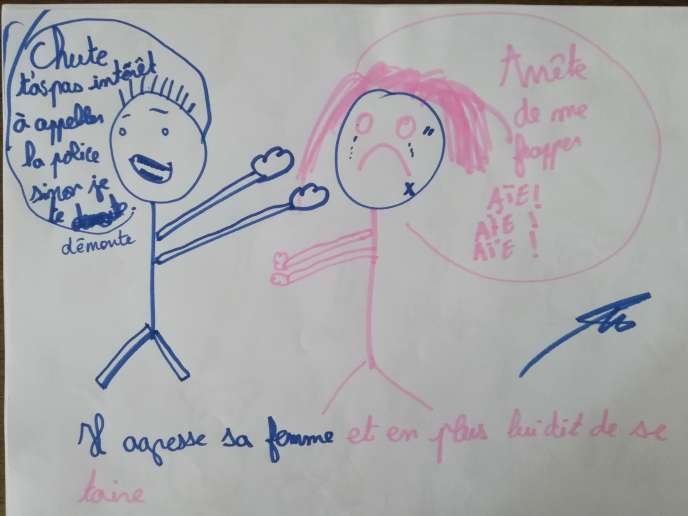 Chute
t'as pas intérêt
à appeller
la police
sinon je
te
démonte
Arrête
de me
frapper
AÏE !
AÏE !
AÏE !
Il agresse sa femme et en plus lui dit de se
taire